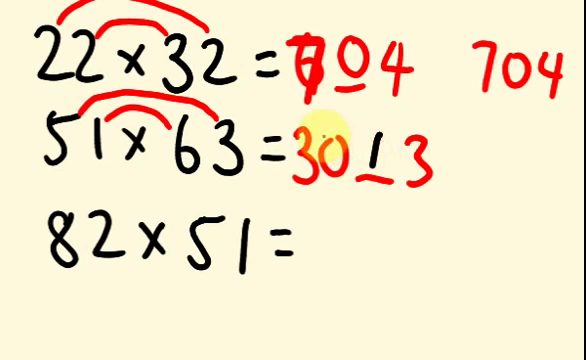 22 × 32 = 704 704
51 × 63 = 3013
82 × 51 =